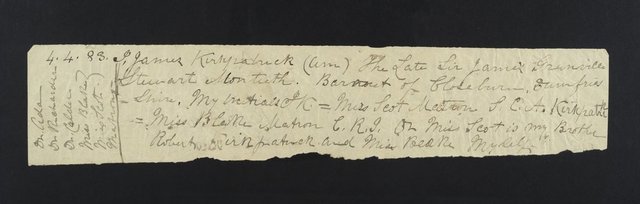 4.4.93. I, James Kirkpatrick (am) The Late Sir James Granville
Stewart Monteith. Baronet of Closeburn, Dumfries
Shire. My initials JK = Miss Scot Matron S.C.A. Kirkpatk
= Miss Blake Matron C.R.I. Or Miss Scot is my Brother
Robert Kirkpatrick and Miss Blake Myself
Dr Richardson
Miss Blake
Miss Scot